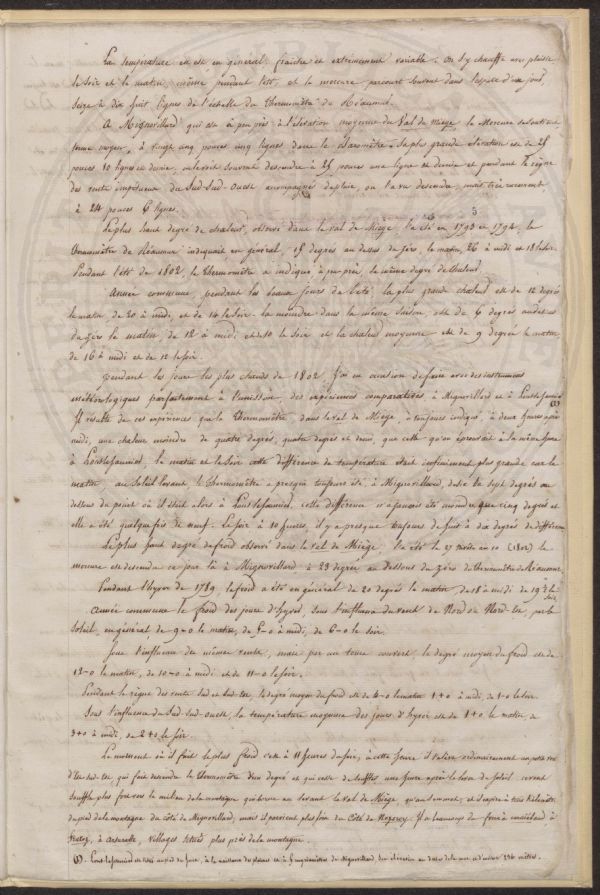 La température est en général fraîche et extrêmement variable : on s'y chauffe avec plaisir
le soir et le matin, même pendant l'été, et le mercure parcourt souvent dans l'espace d'un jour
seize à dix huit lignes de l'échelle du Thermomètre de Réaumur.
A Mignovillard qui est à peu près à l'élévation moyenne du Val de Miège, le Mercure se soutient
terme moyen, à vingt cinq pouces cinq lignes dans le Baromètre. Sa plus grande élévation est de 25
pouces 10 lignes et demie, on le voit souvent descendre à 25 pouces une ligne et demie et pendant le règne
des vents impétueux du Sud-Sud-Ouest accompagnés de pluie, on l'a vu descendre, mais très rarement
à 24 pouces 6 lignes.
Le plus haut degré de chaleur, observé dans le val de Miège, l'a été en 1793 et 1794, le
Thermomètre de Réaumur indiquait, en général, 15 degrés au dessus de zéro, le matin, 26 à midi et 18 le soir.
Pendant l'été de 1802, le Thermomètre a indiqué, à peu près, le même degré de chaleur.
Année commune, pendant les beaux jours de l'été la plus grande chaleur est de 12 degrés
le matin, de 20 à midi, et de 14 le soir. la moindre dans la même saison, est de 6 degrés au dessus
du zéro le matin, de 12 à midi et de 10 le soir et la chaleur moyenne est de 9 degrés le matin,
de 16 à midi et de 12 le soir.
pendant les jours les plus chauds de 1802, j'ai eu occasion de faire avec des instrumens
météorologiques parfaitement à l'unisson, des expériences comparatives, à Mignovillard et à Lonslesaunier (1)
Il résulte de ces expériences que le Thermomètre, dans le val de Miège, a toujours indiqué, à deux heures après
midi, une chaleur moindre de quatre degrés, quatre degrés et demi, que celle qu'on éprouvait à la même heure
à Lonslesaunier, le matin et le soir cette différence de température était infiniment plus grande car le
matin, au Soleil levant, le Thermomètre a presque toujours été, à Mignovillard, de six à sept degrés au
dessous du point où il était alors à Lonslesaunier, cette différence n'a jamais été moindre que cinq degrés et
elle a été quelquefois de neuf. Le soir à 10 heures, il y a presque toujours de huit à dix degrés de différence.
Le plus haut degré de froid observé dans le val de Miège, l'a été le 27 nivôse an 10 (1802) le
mercure est descendu ce jour là à Mignovillard à 23 degrés au dessous du zéro du thermomètre de Réaumur.
Pendant l'hyver de 1789, le froid a été en général de 20 degrés le matin, de 18 à midi de 19 le soir.
Année commune le froid des jours d'hyver, sous l'influence du vent de Nord ou Nord-Est, par le
Soleil, est en général de 9-0 le matin, de 5-0 à midi, de 6-0 le soir.
Sous l'influence des mêmes vents, mais par un tems couvert, le degré moyen du froid est de
12-0 le matin, de 10-0 à midi et de 11-0 le soir.
Pendant le règne des vents Sud et Sud-Est, le degré moyen du froid est de 4-0 le matin 1+0 à midi, de 1-0 le soir.
Sous l'influence du Sud-Sud-Ouest, la température moyenne des jours d'hyver est de 1+0 le matin, de
3+0 à midi, de 2+0 le soir.
Le moment où il fait le plus froid c'est à 11 heures du soir, à cette heure il s'élève ordinairement un petit vent
d'Est-Sud-Est, qui fait descendre le thermomètre d'un degré et qui cesse de souffler une heure après le lever du Soleil. ce vent
souffle plus fort vers le milieu de la montagne qui borne au levant le val de Miège qu'au sommet, et s'expire à trois kilomètres
du pied de la montagne du côté de Mignovillard, mais il parvient plus loin du côté de Nozeroy. Il a beaucoup de force à
à Arsurette, villages situés plus près de la montagne.
(1) Lonslesaunier est situé au pied du Jura, à la naissance du plateau et à myriamètres de Mignovillard, son élévation au dessus de la mer est d'environ 236 mètres.